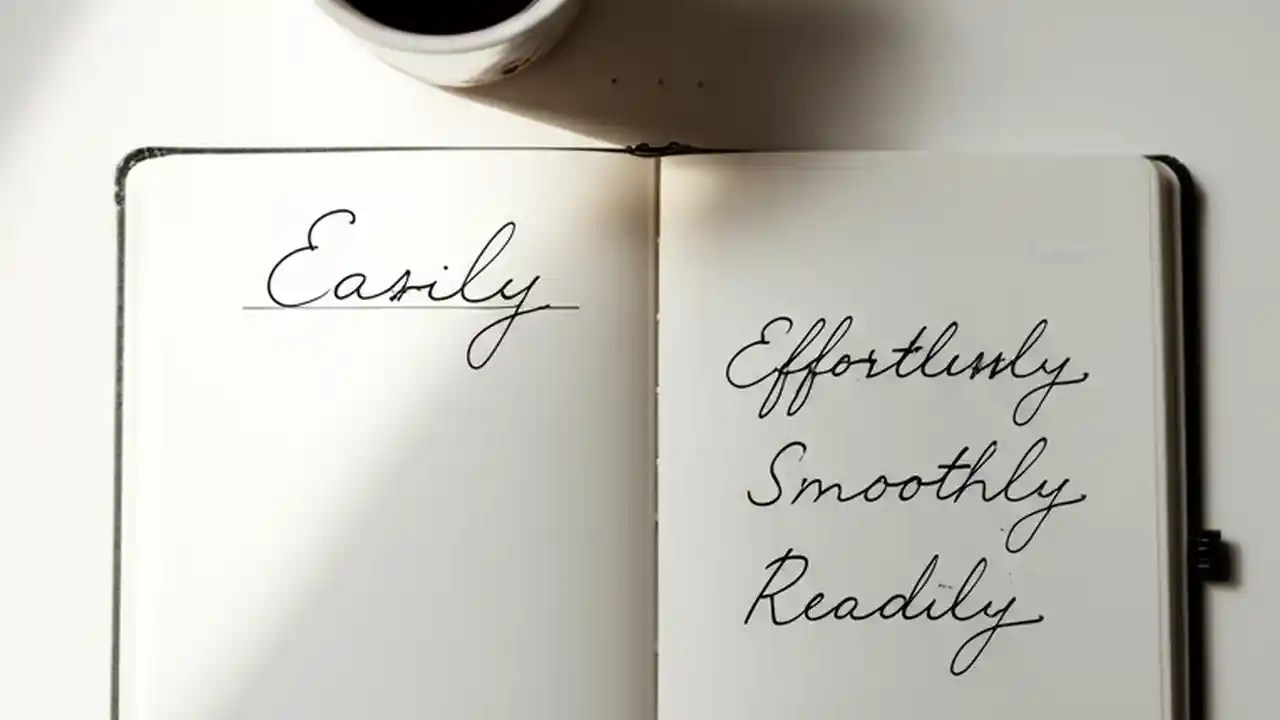 Easily
Effortlessly
Smoothly
Readily